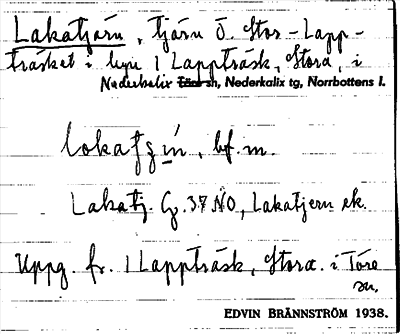 Lakatjärn, tjärn Ö. Stor-Lapp-
träsket i byn 1 Lappträsk, Stora, i
Nederkalix sn, Nederkalix tg, Norrbottens l.
bf. m.
Lakatj. G. 37 NO, Lakatjern ek.
Uppg. fr. 1 Lappträsk, Stora. i Töre
sn.
EDVIN BRÄNNSTRÖM 1938.